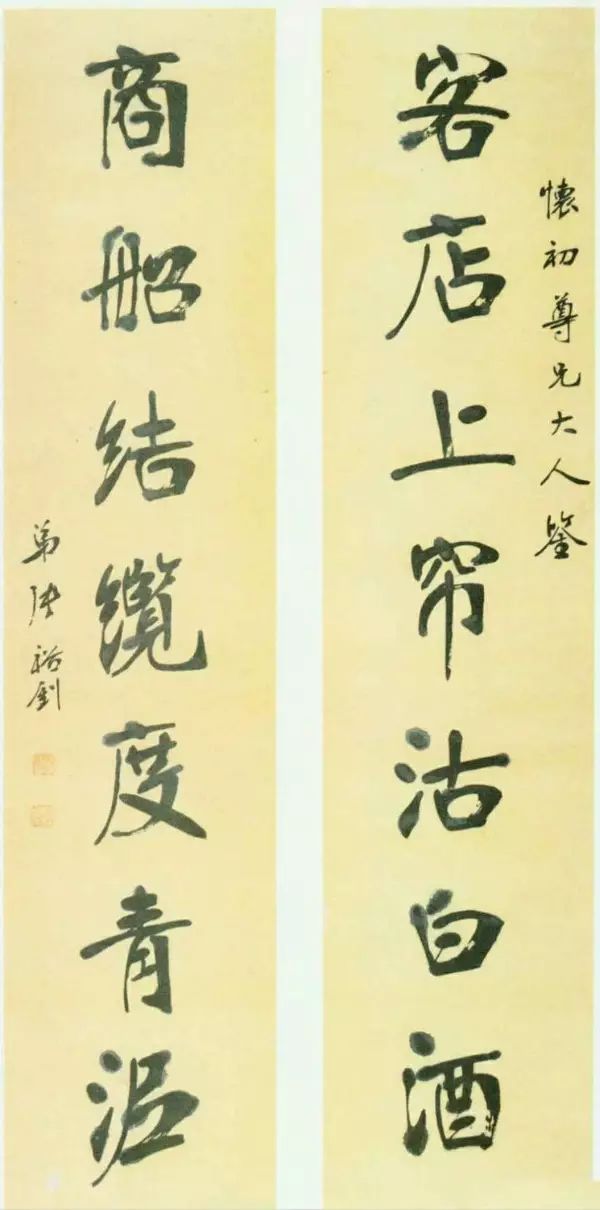 懷初尊兄大人鉴
客店上帘沽白酒
商船结缆度青泥
弟张裕钊